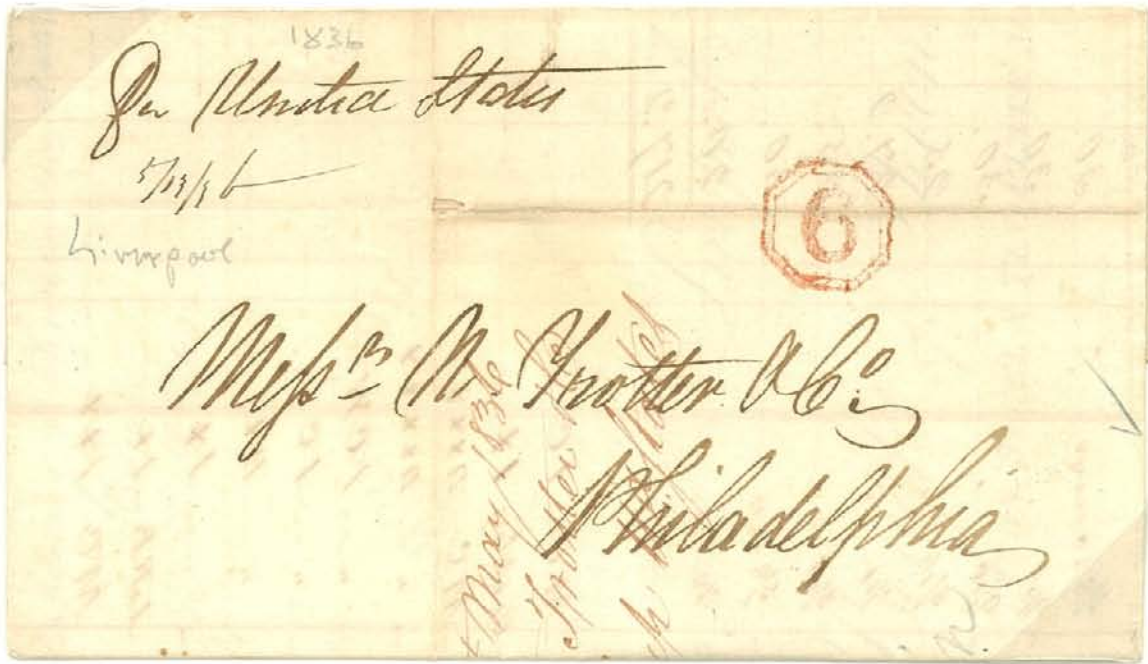 1836
Per United States
5/13/36
Liverpool
6
Messrs N. Trotter & Co.
Philadelphia
May 1836
Trotter